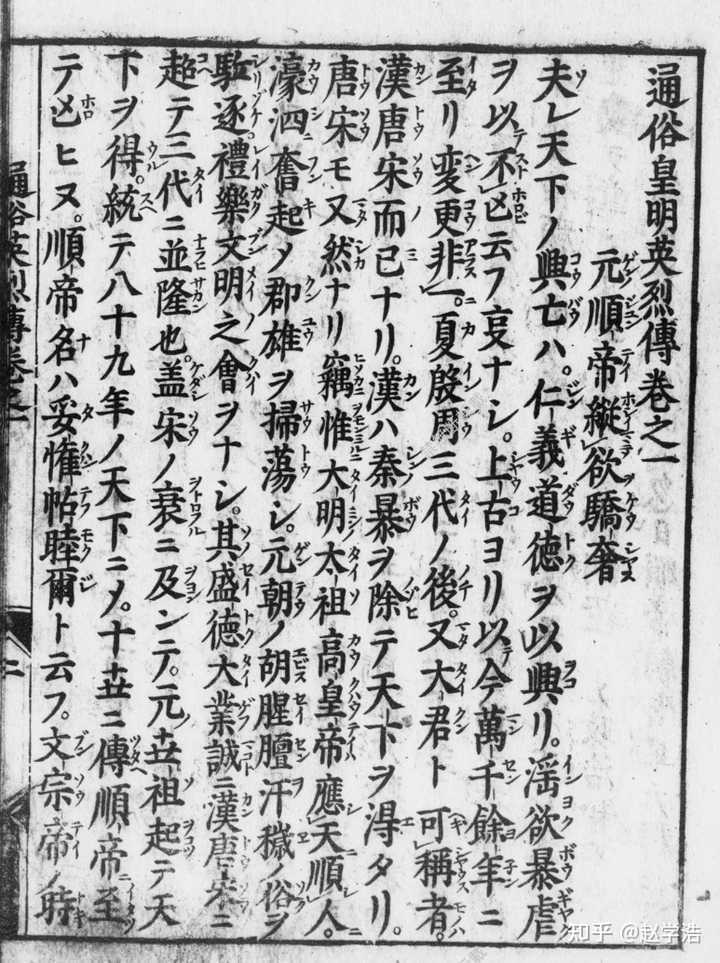 通俗皇明英烈傳卷之一
元順帝縱欲驕奢
夫レ天下ノ興亡ハ。仁義道德ヲ以興リ。淫欲暴虐
ヲ以不亡云フ叓ナシ。上古ヨリ以今萬千餘年ニ
至リ変更非一。夏殷周三代ノ後。又大君ト可稱者。
漢唐宋而已ナリ。漢ハ秦暴ヲ除テ天下ヲ淂タリ。
唐宋モ又然ナリ竊惟大明太祖高皇帝應天順人。
濠泗奮起メ郡雄ヲ掃蕩シ。元朝ノ胡腥膻汗穢ノ俗ヲ
駈逐禮樂文明之會ヲナシ。其盛德大業誠ニ漢唐宋ニ
超テ三代ニ並隆也。盖宋ノ衰ニ及ンテ。元ノ丗祖起テ天
下ヲ得。統テ八十九年ノ天下ニメ。十丗ニ傳順帝至
テ亡ヒヌ。順帝名ハ妥懽帖睦爾ト云フ。文宗帝ノ時
通俗英烈傳卷之一
二
知乎 @赵学浩